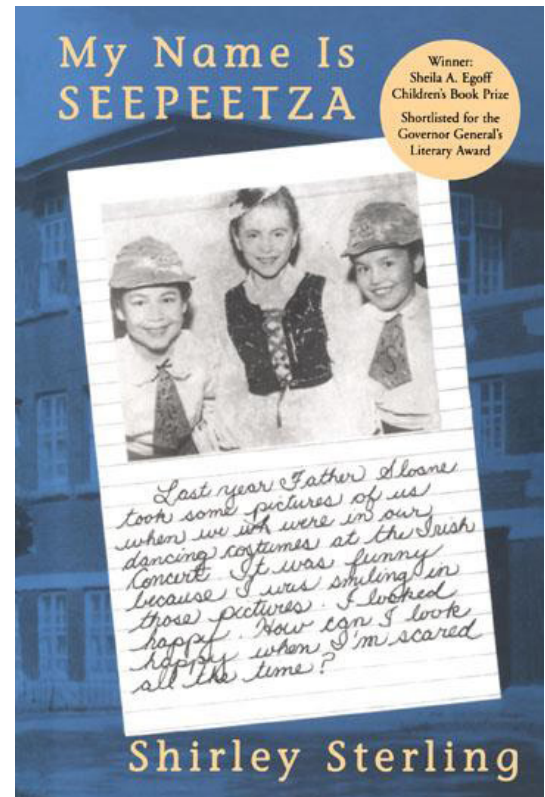 My Name Is
SEEPEETZA
Winner:
Sheila A. Egoff
Children's Book Prize
Shortlisted for the
Governor General's
Literary Award
Last year Father Sloane
took some pictures of us
when we wh were in our
dancing costumes at the Irish
Concert. It was funny
because I was smiling in
those pictures. I looked
happy. How can I look
happy when I'm scared
all the time?
Shirley Sterling